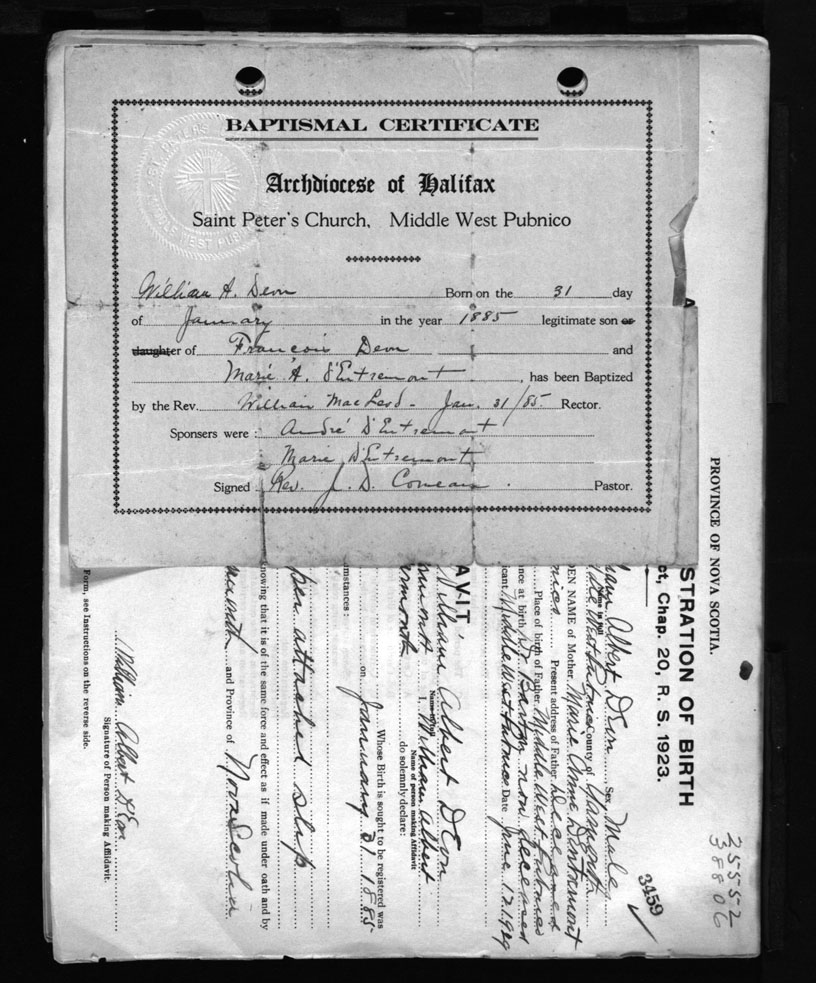 BAPTISMAL CERTIFICATE
Archdiocese of Halifax
Saint Peter's Church, Middle West Pubnico
William A. Deon Born on the 31 day
of January in the year 1885 legitimate son or
daughter of Francois Deon and
Marie A. d'Entremont, has been Baptized
by the Rev. William MacLeod - Jan. 31/85 Rector.
Sponsers were: André D'Entremont
Marie D'Entremont
Signed Rev. J. D. Comeau. Pastor.
PROVINCE OF NOVA SCOTIA.
STRATION OF BIRTH
ct, Chap. 20, R. S. 1923.
25552
38806
3459
Albert Deon Sex Male
West Pubnico County of Yarmouth
DEN NAME of Mother Marie Anne Dentremont
Present address of Father Deceased
Place of birth of Father Middle West Pubnico
nce at birth Dr. Barton now deceased
icant Middle West Pubnico Date June 12 1929
AVIT
William Albert Deon
Name in full
I, William Albert
Name of person making Affidavit
do solemnly declare:
Whose Birth is sought to be registered was
on January 31 1885
mstances:
per attached slip
knowing that it is of the same force and effect as if made under oath and by
and Province of Nova Scotia
William Albert D'Eon
Signature of Person making Affidavit.
Form, see Instructions on the reverse side.